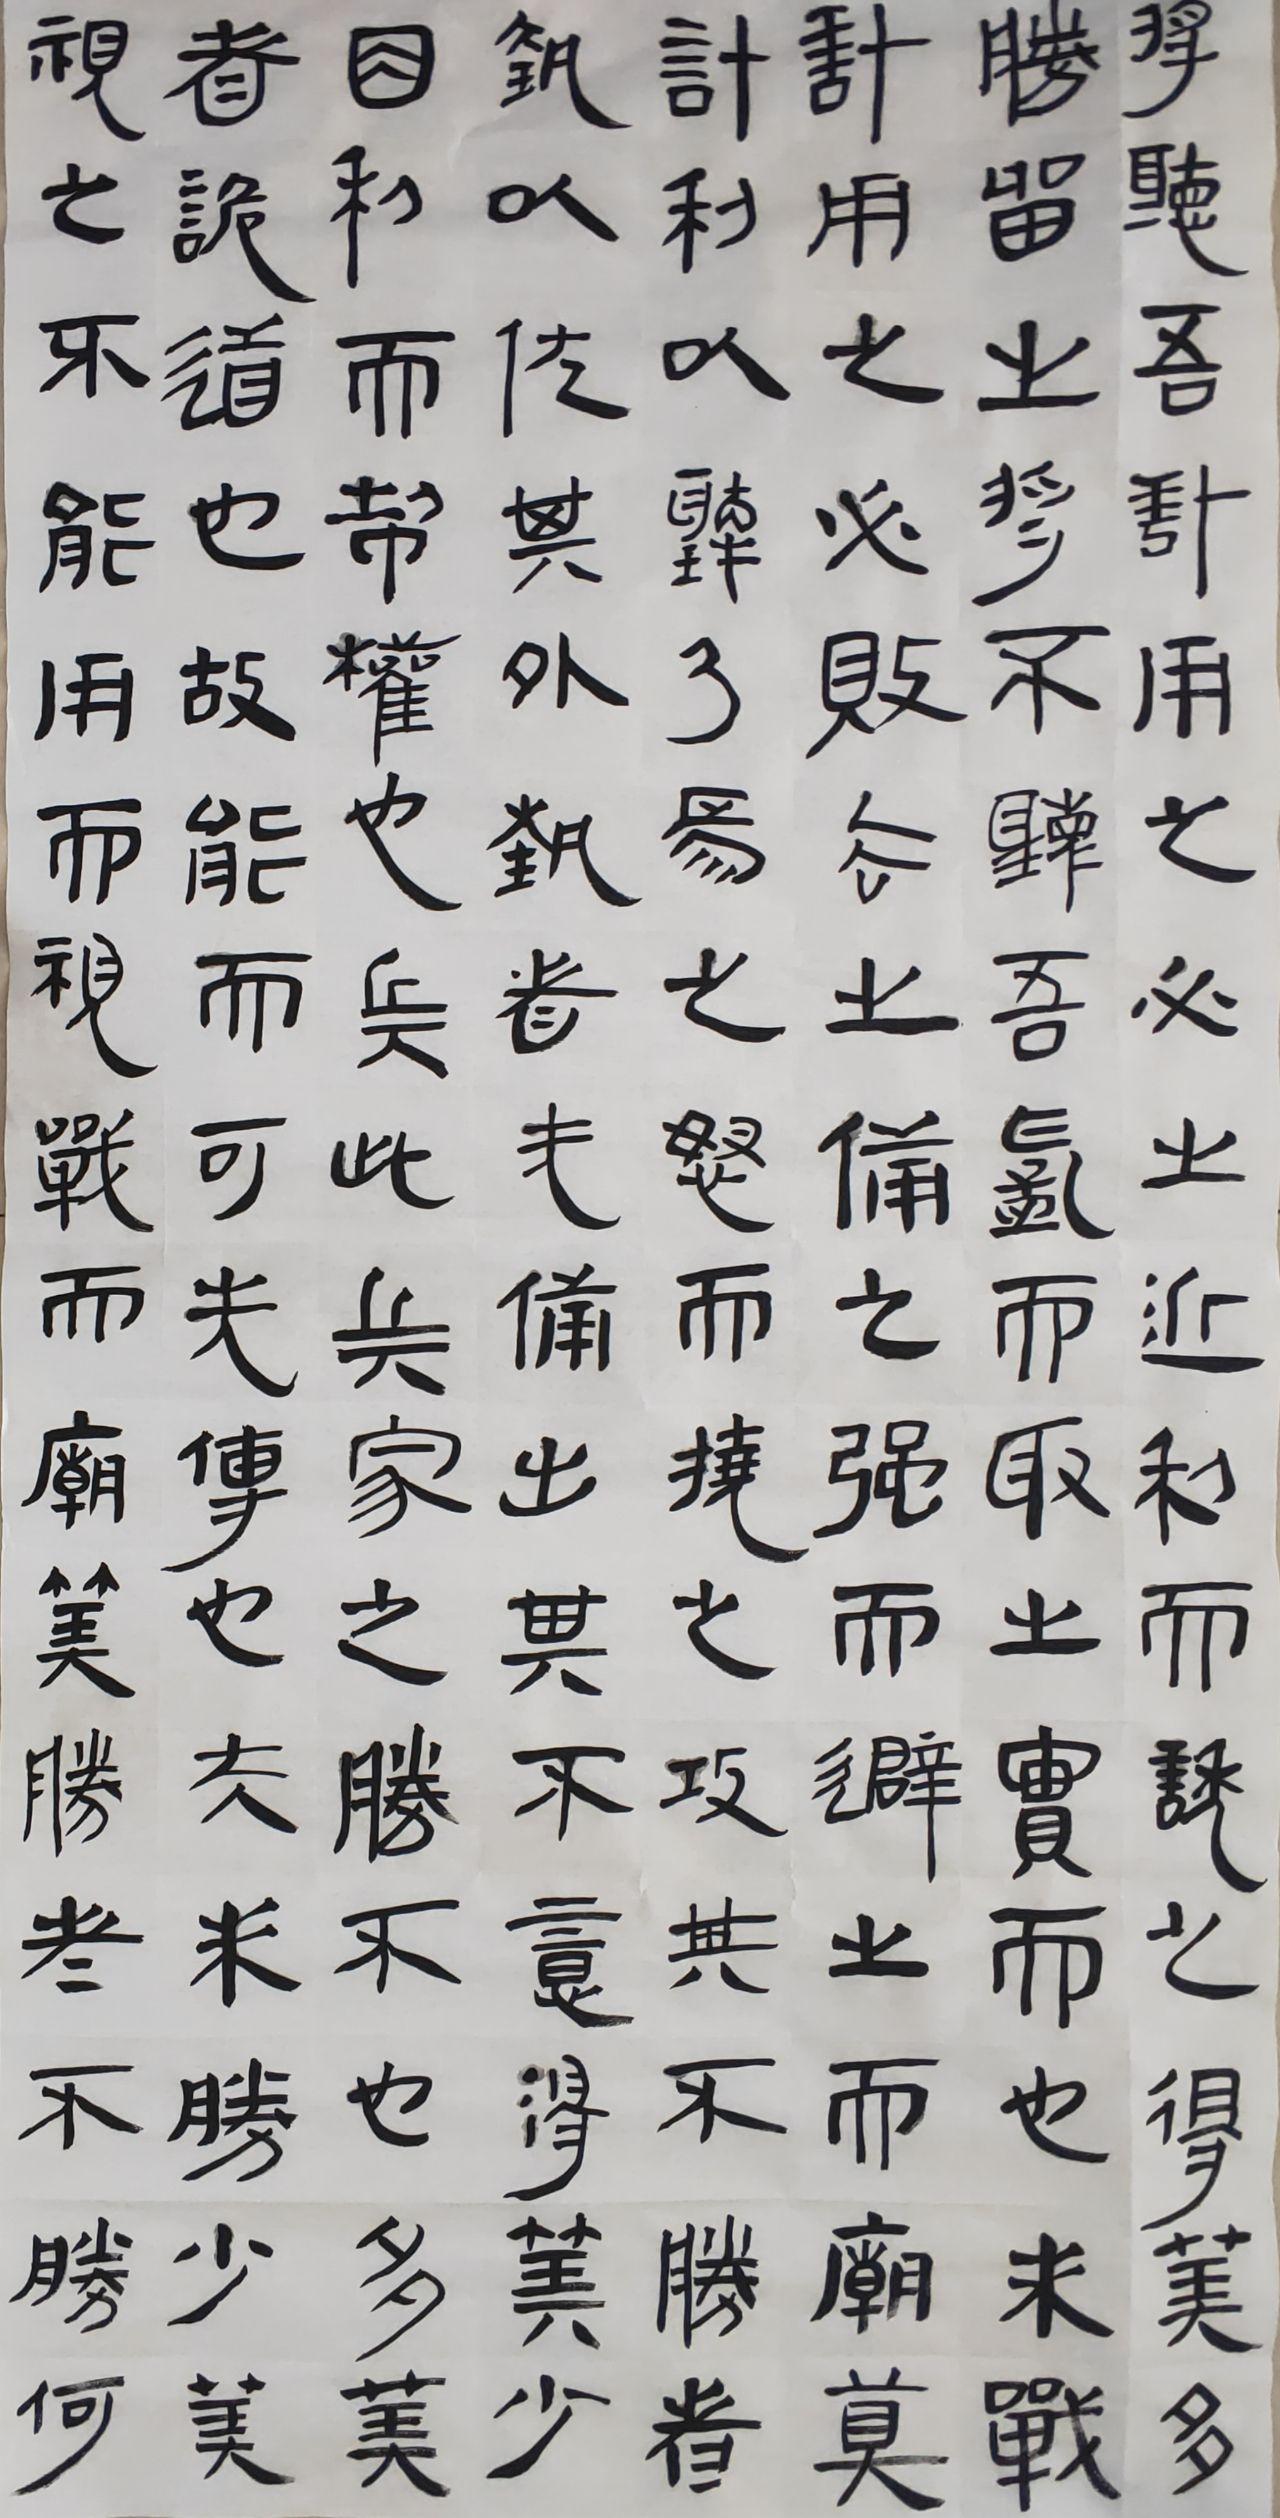 將聽吾計用之必之近利而誘之得筭多
勝留之將不聽吾亂而取之實而也未戰
計用之必敗去之備之强而避之而廟筭
計利以聽乃爲之怒而撓之攻其不勝者
埶以佐其外埶者无備出其不意得筭少
因利而制權也兵此兵家之勝不也多筭
者詭道也故能而可先傳也夫未勝少筭
視之不能用而視戰而廟筭勝者不勝何